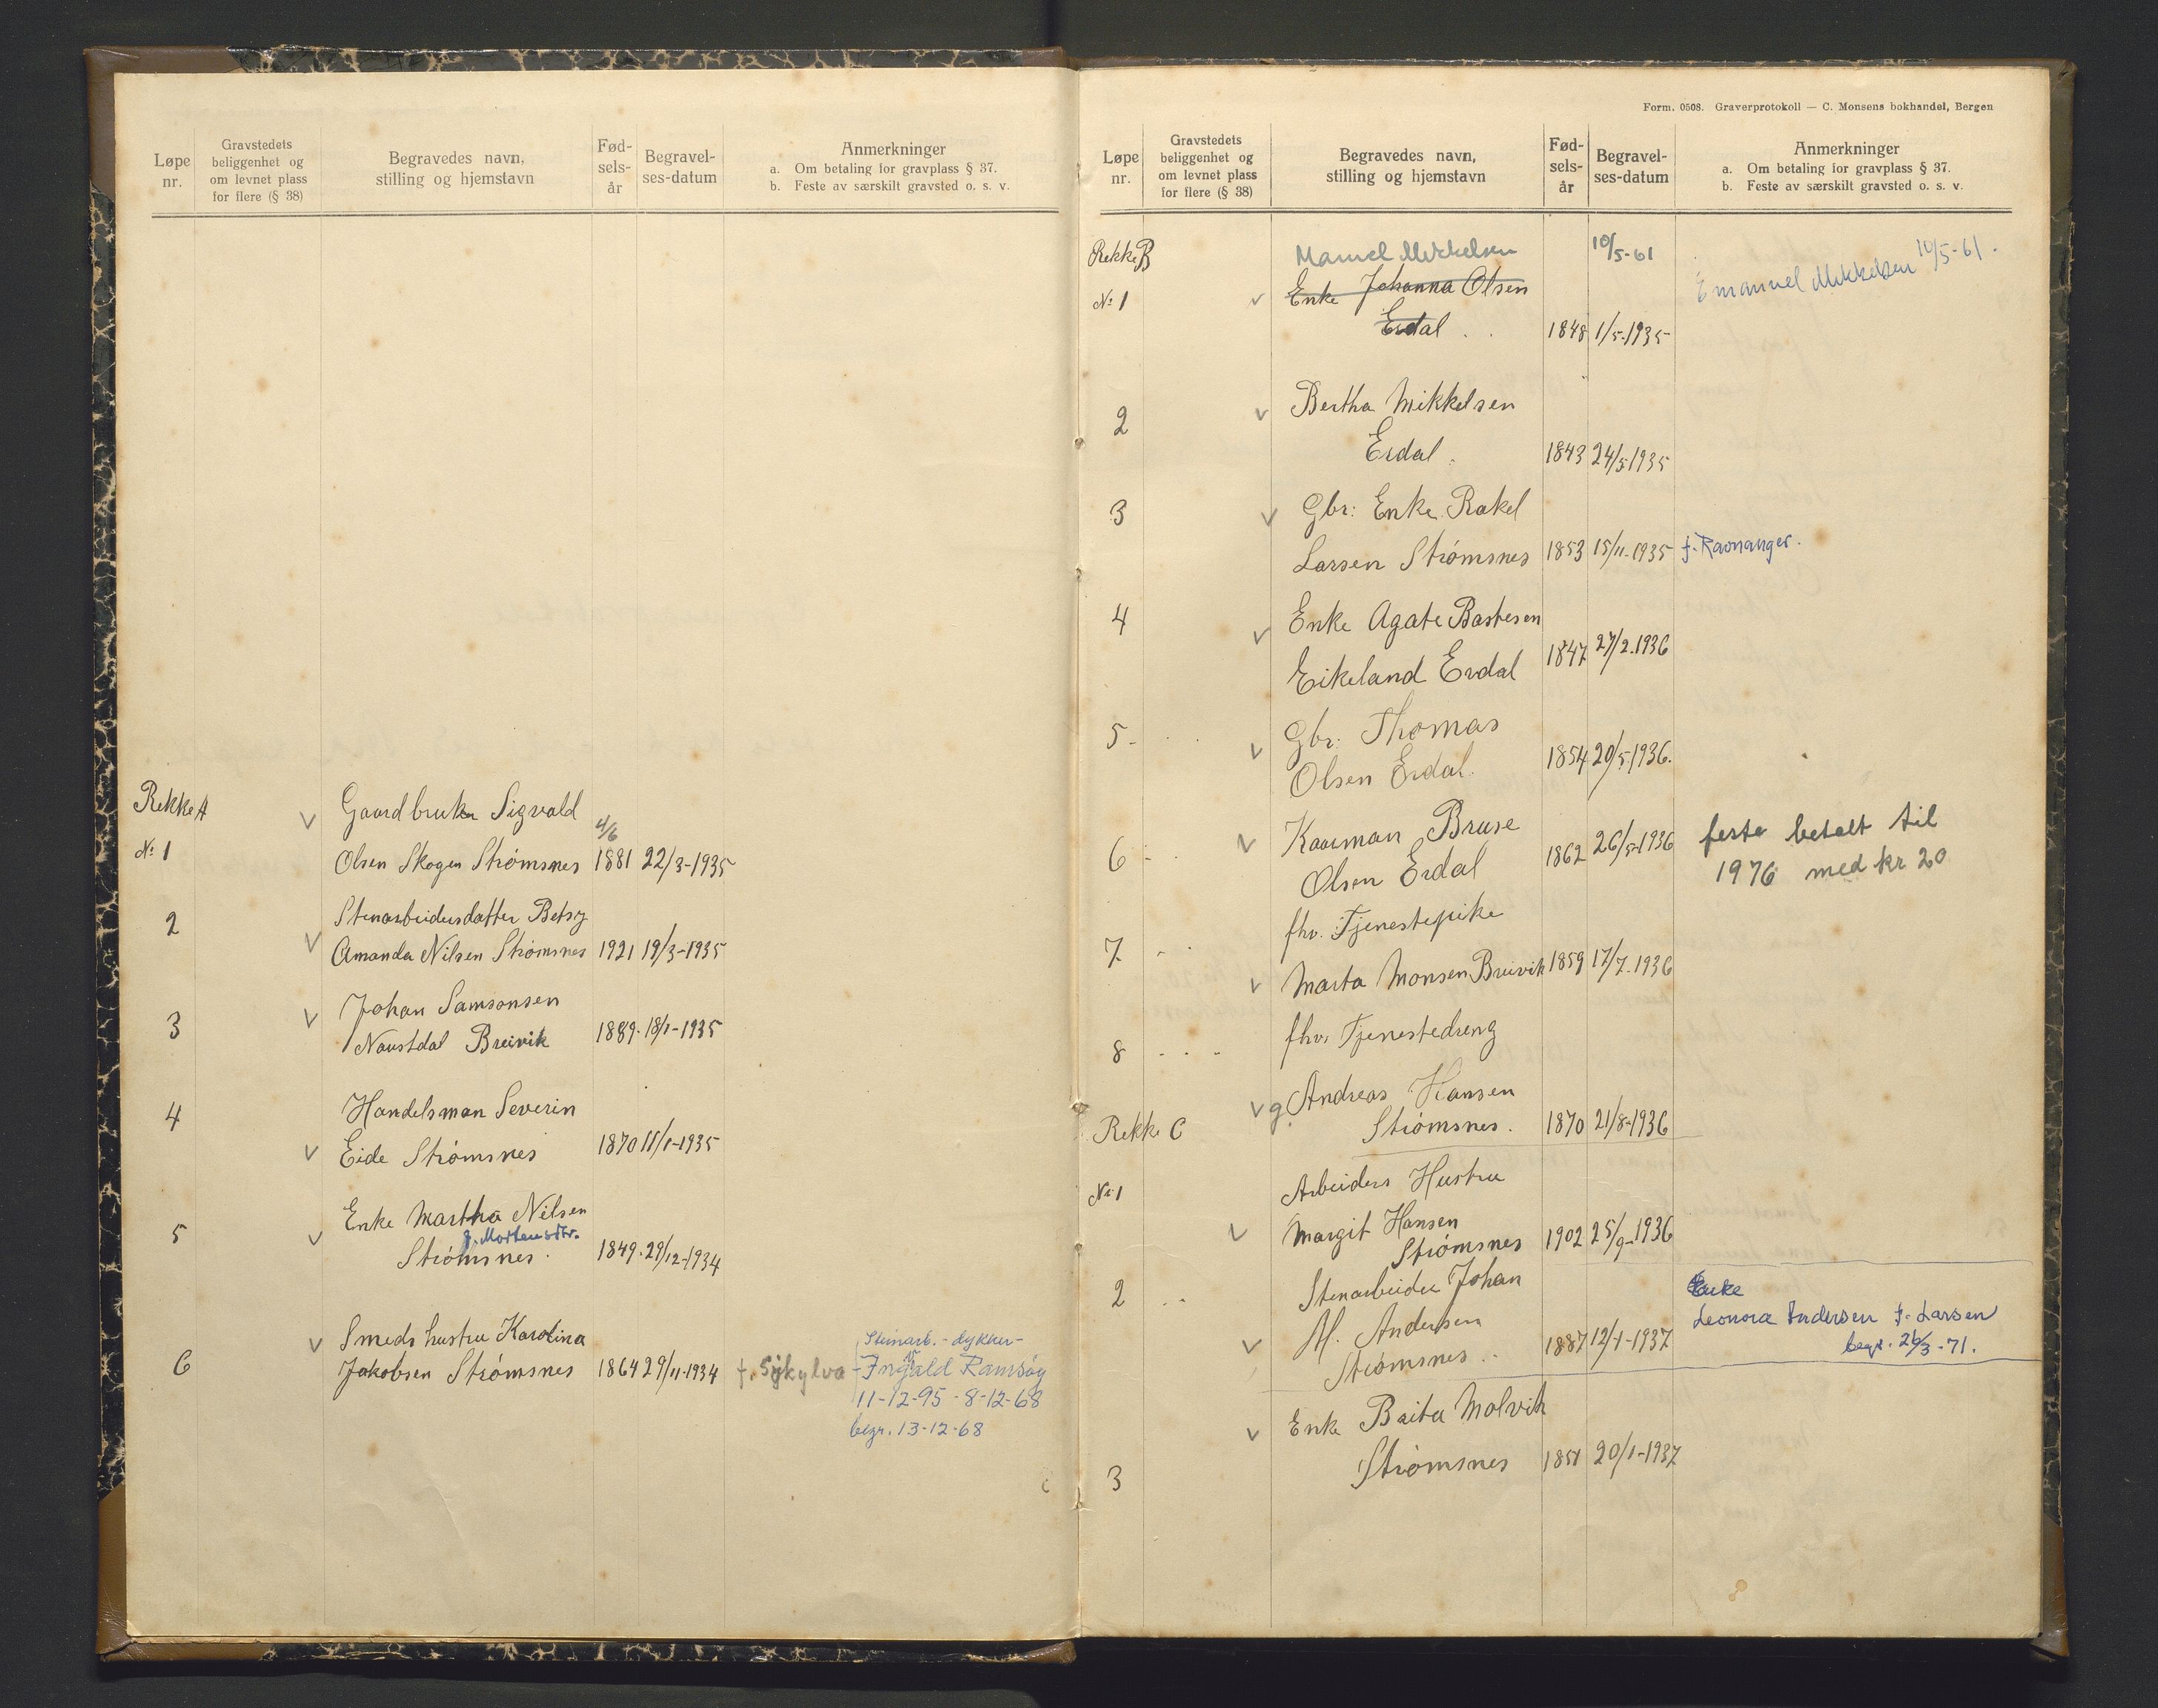 Løpe nr.
Gravstedets beliggenhet og om levnet plass for flere (§ 38)
Begravedes navn, stilling og hjemstavn
Fød-sels-år
Begravel-ses-datum
Anmerkninger
a. Om betaling for gravplass § 37.
b. Feste av særskilt gravsted o. s. v.
Rekke A
Gaardbruker Sigvald
4/6
№ 1
Olsen Skogen Strømsnes 1881 22/3-1935
2
Stenarbeidersdatter Betsy
Amanda Nilsen Strømsnes 1921 19/3-1935
3
Johan Samsonsen
Naustdal Breivik 1889. 18/1-1935
4
Handelsman Severin
Eide Strømsnes 1870 11/1-1935
5
Enke Martha Nilsen
f. Mortensdtr.
Strømsnes. 1849. 29/12-1934
6
Smeds hustru Karolina
Jakobsen Strømsnes 1864 29/11-1934 f. Sykylva
Steinarb. - dykker -
Ingvald Ramsøy
11-12-95 - 8-12-68
begr. 13-12-68
Form. 0508. Graverprotokoll — C. Monsens bokhandel, Bergen
Løpe nr.
Gravstedets beliggenhet og om levnet plass for flere (§ 38)
Begravedes navn, stilling og hjemstavn
Fød-sels-år
Begravel-ses-datum
Anmerkninger
a. Om betaling for gravplass § 37.
b. Feste av særskilt gravsted o. s. v.
Rekke B
Manuel Mikkelsen 10/5-61
Emanuel Mikkelsen 10/5-61.
№ 1
Enke Johanna Olsen
Erdal 1848 1/5-1935
2
Bertha Mikkelsen
Erdal. 1843 24/5 1935
3
Gbr: Enke Rakel
Larsen Strømsnes 1853 15/11-1935 f. Ravnanger.
4
Enke Agate Bastesen
Eikeland Erdal 1847 27/2.1936
5
Gbr: Thomas
Olsen Erdal. 1854 20/5-1936.
6
Kaarman Bruse
Olsen Erdal 1862 26/5-1936
feste betalt til
1976 med kr 20
7
fhv. Tjenestepike
Marta Monsen Breivik 1859 17/7-1936
8
fhv. Tjenestedreng
g Andreas Hansen
Strømsnes. 1870 21/8-1936
Rekke C
№ 1
Arbeiders Hustru
Margit Hansen
Strømsnes 1902 25/9-1936
2
Stenarbeider Johan
M. Andersen
Strømsnes. 1887 12/1-1937
Enke
Leonora Andersen f. Larsen
begr. 26/3-71.
3
Enke Brita Molvik
Strømsnes 1851 20/1-1937